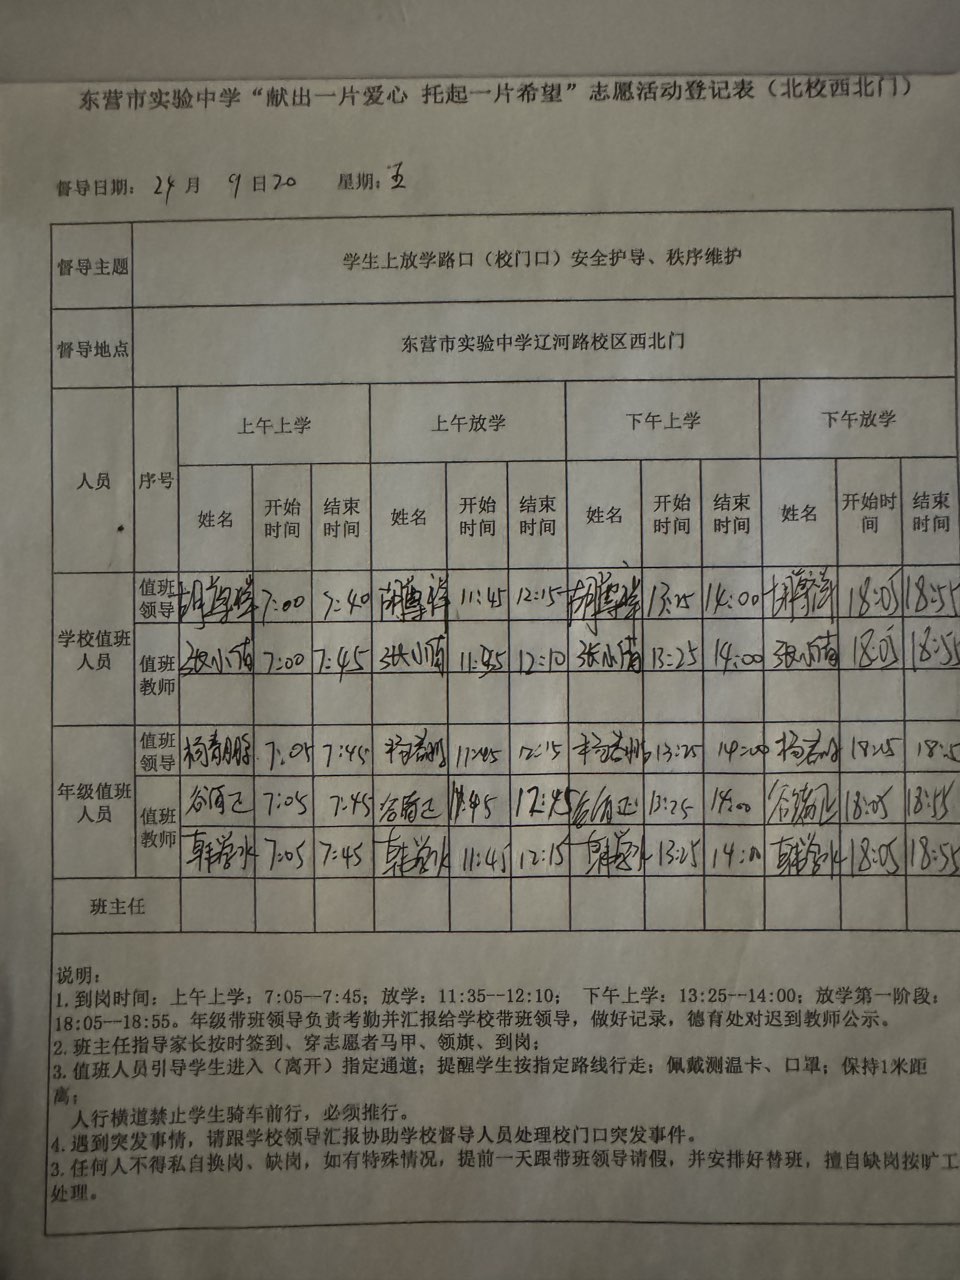 东营市实验中学“献出一片爱心 托起一片希望”志愿活动登记表（北校西北门）
督导日期： 24 月 9 日 20 星期：五
督导主题 学生上放学路口（校门口）安全护导、秩序维护
督导地点 东营市实验中学辽河路校区西北门
人员 序号 上午上学 上午放学 下午上学 下午放学
姓名 开始时间 结束时间 姓名 开始时间 结束时间 姓名 开始时间 结束时间 姓名 开始时间 结束时间
学校值班人员 值班领导 7:00 7:40 11:45 12:15 13:25 14:00 18:05 18:55
值班教师 张小倩 7:00 7:45 张小倩 11:45 12:10 张小倩 13:25 14:00 张小倩 18:05 18:55
年级值班人员 值班领导 杨春鹏 7:05 7:45 杨春鹏 11:45 12:15 杨春鹏 13:25 14:00 杨春鹏 18:05
值班教师 7:05 7:45 11:45 12:45 13:25 14:00 18:05 18:55
7:05 7:45 11:45 12:15 13:25 18:05 18:55
班主任
说明：
1.到岗时间：上午上学：7:05--7:45；放学：11:35--12:10； 下午上学：13:25--14:00；放学第一阶段：
18:05--18:55。年级带班领导负责考勤并汇报给学校带班领导，做好记录，德育处对迟到教师公示。
2.班主任指导家长按时签到、穿志愿者马甲、领旗、到岗；
3.值班人员引导学生进入（离开）指定通道；提醒学生按指定路线行走；佩戴测温卡、口罩；保持1米距
离；
人行横道禁止学生骑车前行，必须推行。
4.遇到突发事情，请跟学校领导汇报协助学校督导人员处理校门口突发事件。
3.任何人不得私自换岗、缺岗，如有特殊情况，提前一天跟带班领导请假，并安排好替班，擅自缺岗按旷工
处理。